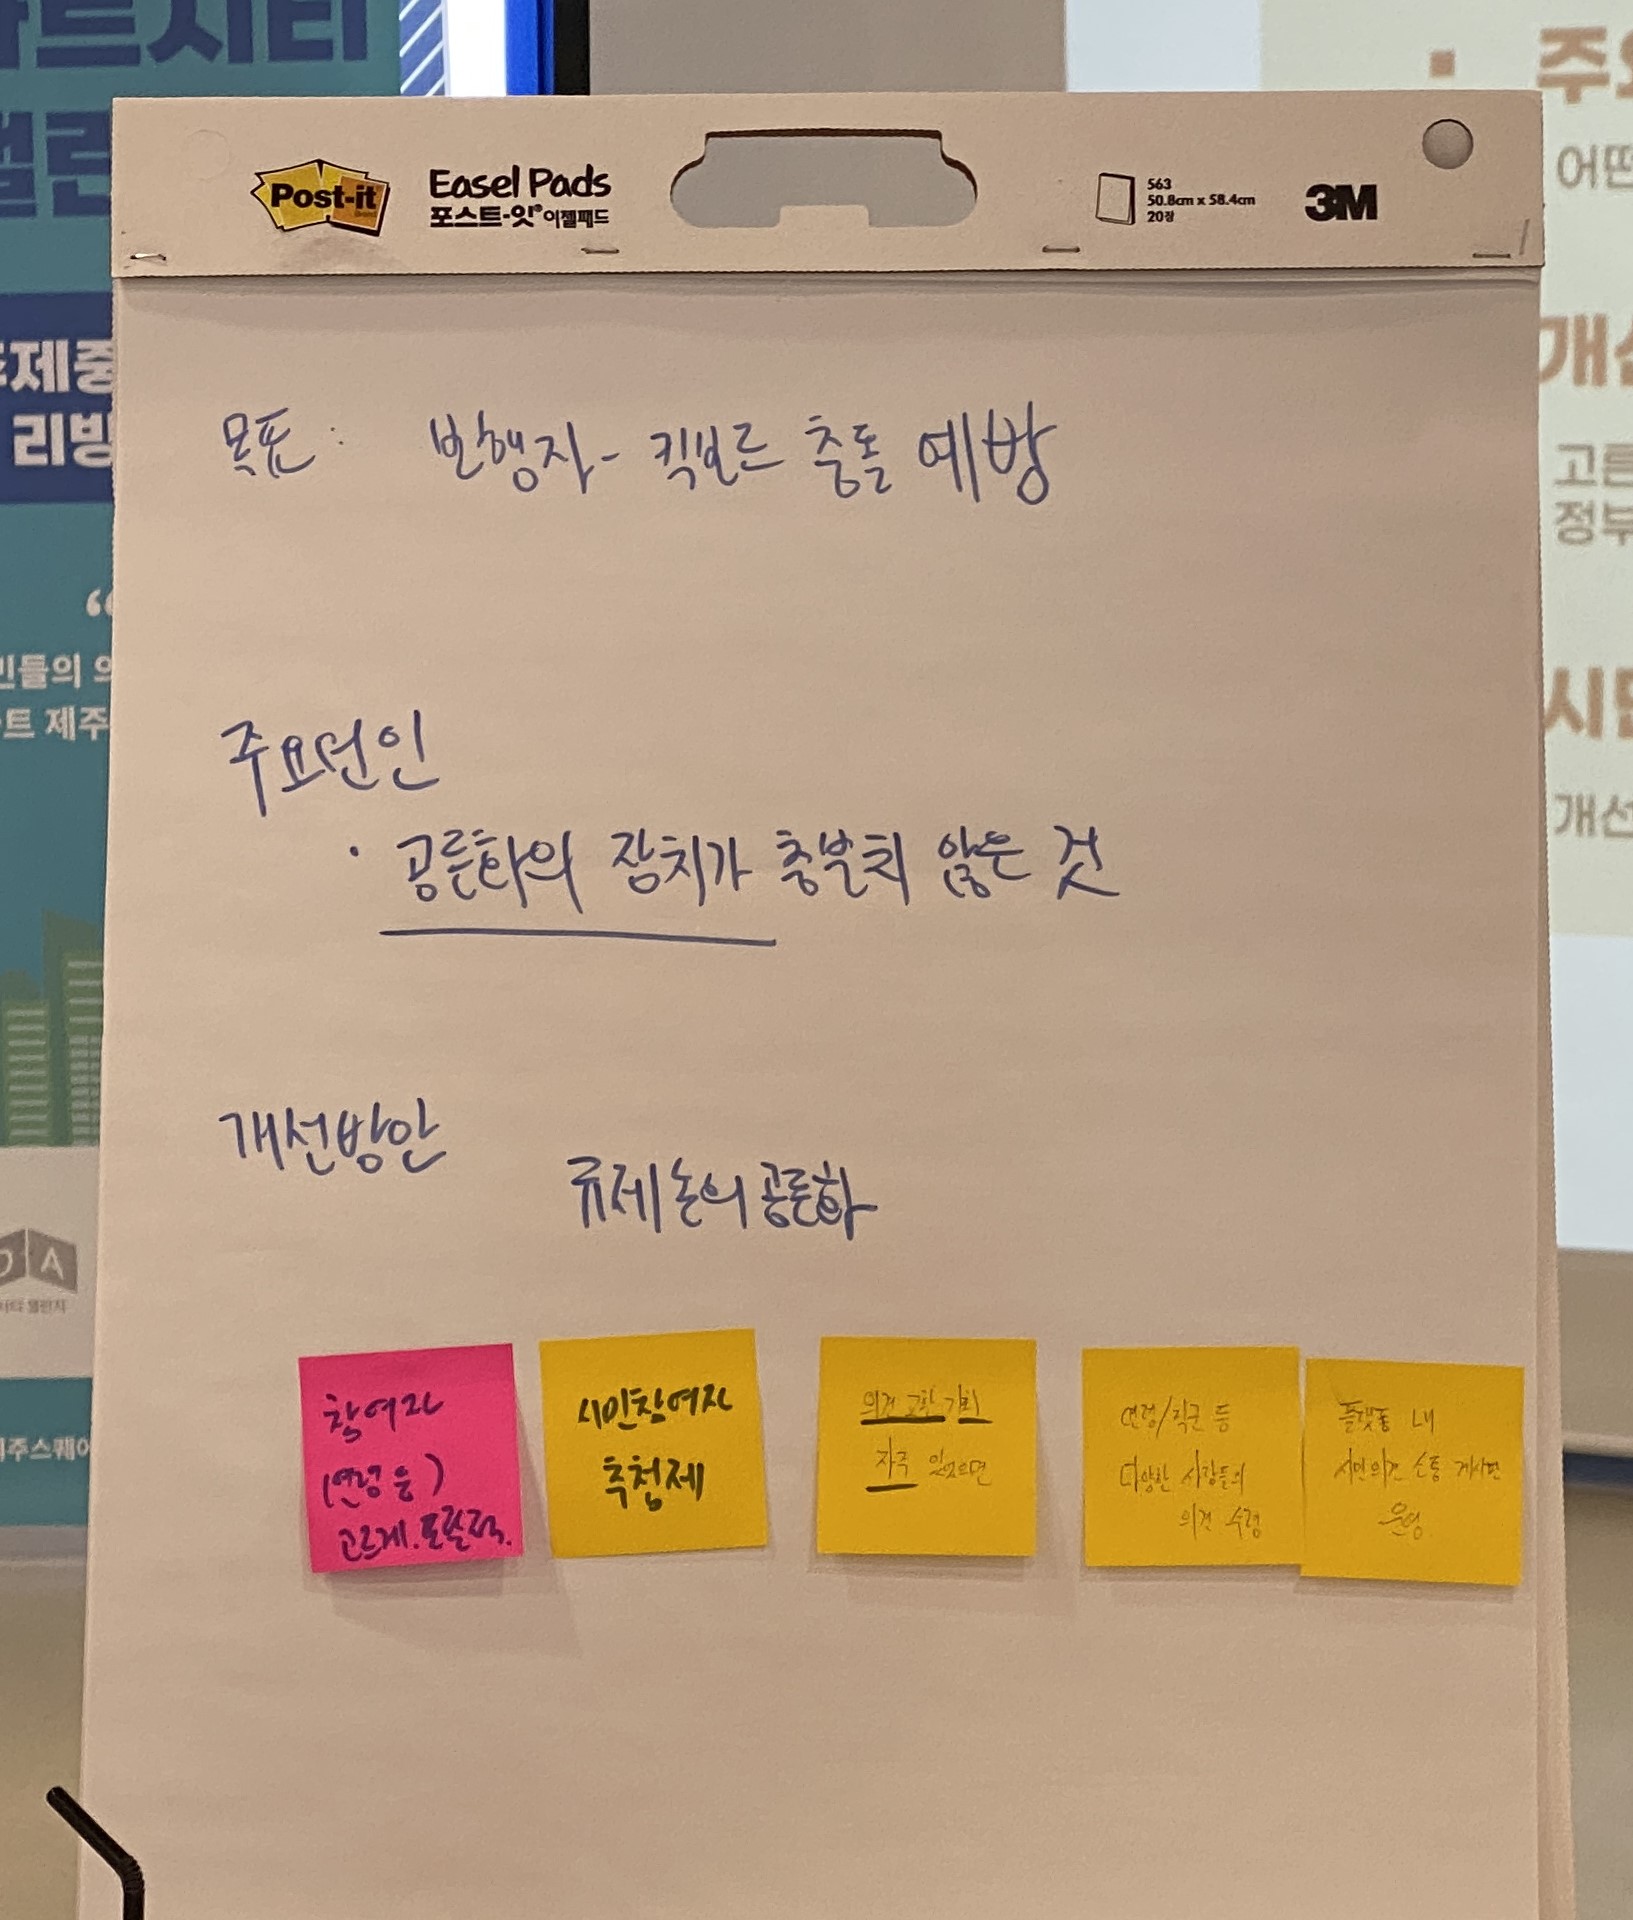 Post-it
Easel Pads
포스트-잇 이젤패드
563
50.8cm x 58.4cm
20장
3M
목표: 보행자- 킥보드 충돌 예방
주요원인
· 공론화의 장치가 충분치 않은 것
개선방안
규제 논의 공론화
참여자
(연령 등)
고르게. 포괄적.
시민참여자
추첨제
의견 교환 기회
자주 있으면
연령/직군 등
다양한 사람들의
의견 수렴
플랫폼 내
시민의견 소통 게시판
운영
제중
리빙
민들의
트 제주
주스퀘어
챌린지
주요
어떤
개선
고른
정부
시민
개선